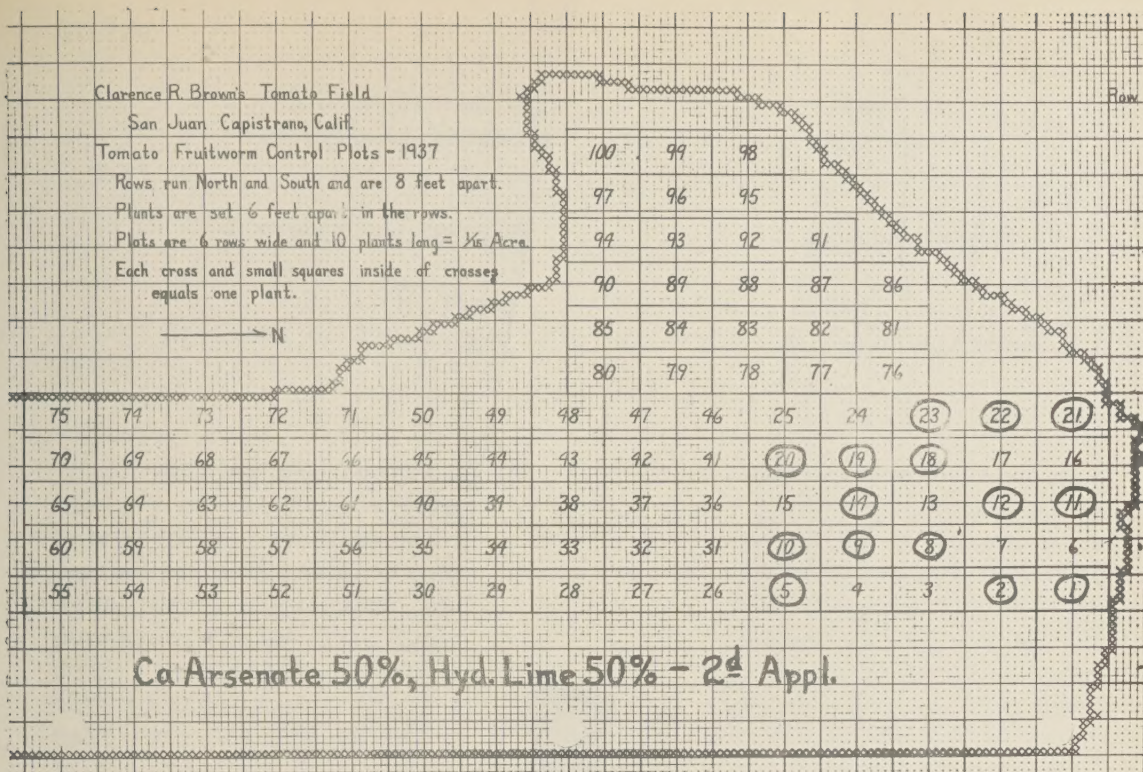 Row
Clarence R. Brown's Tomato Field
San Juan Capistrano, Calif.
Tomato Fruitworm Control Plots - 1937
Rows run North and South and are 8 feet apart.
Plants are set 6 feet apart in the rows.
Plots are 6 rows wide and 10 plants long = 1/15 Acre.
Each cross and small squares inside of crosses
equals one plant.
N
100 99 98
97 96 95
94 93 92 91
90 89 88 87 86
85 84 83 82 81
80 79 78 77 76
75 74 73 72 71 50 49 48 47 46 25 24 23 22 21
70 69 68 67 66 45 44 43 42 41 20 19 18 17 16
65 64 63 62 61 40 39 38 37 36 15 14 13 12 11
60 59 58 57 56 35 34 33 32 31 10 9 8 7 6
55 54 53 52 51 30 29 28 27 26 5 4 3 2 1
Ca Arsenate 50%, Hyd. Lime 50% - 2d Appl.